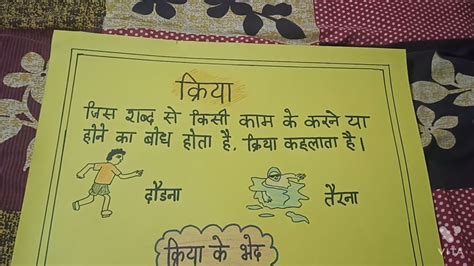 क्रिया
जिस शब्द से किसी काम के करने या
होने का बोध होता है, क्रिया कहलाता है।
दौडना
तैरना
क्रिया के भेद
VITA